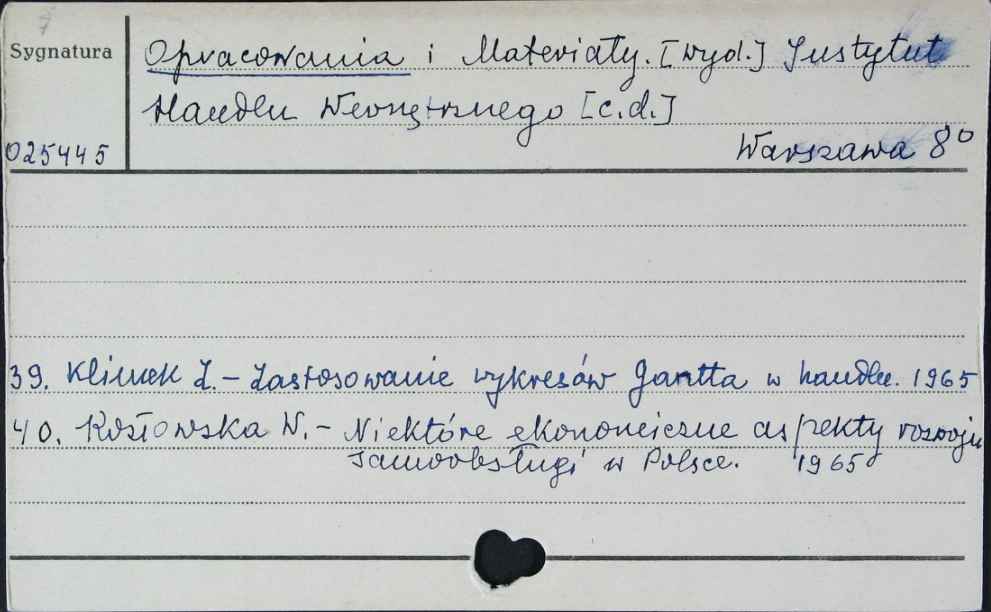 Sygnatura
Opracowania i Materiały. [wyd.] Instytut
Handlu Wewnętrznego [c.d.]
025445
Warszawa 8°
39. Klimek Z. - Zastosowanie wykresów Gantta w handlu. 1965
40. Kozłowska W. - Niektóre ekonomiczne aspekty rozwoju
samoobsługi w Polsce. 1965